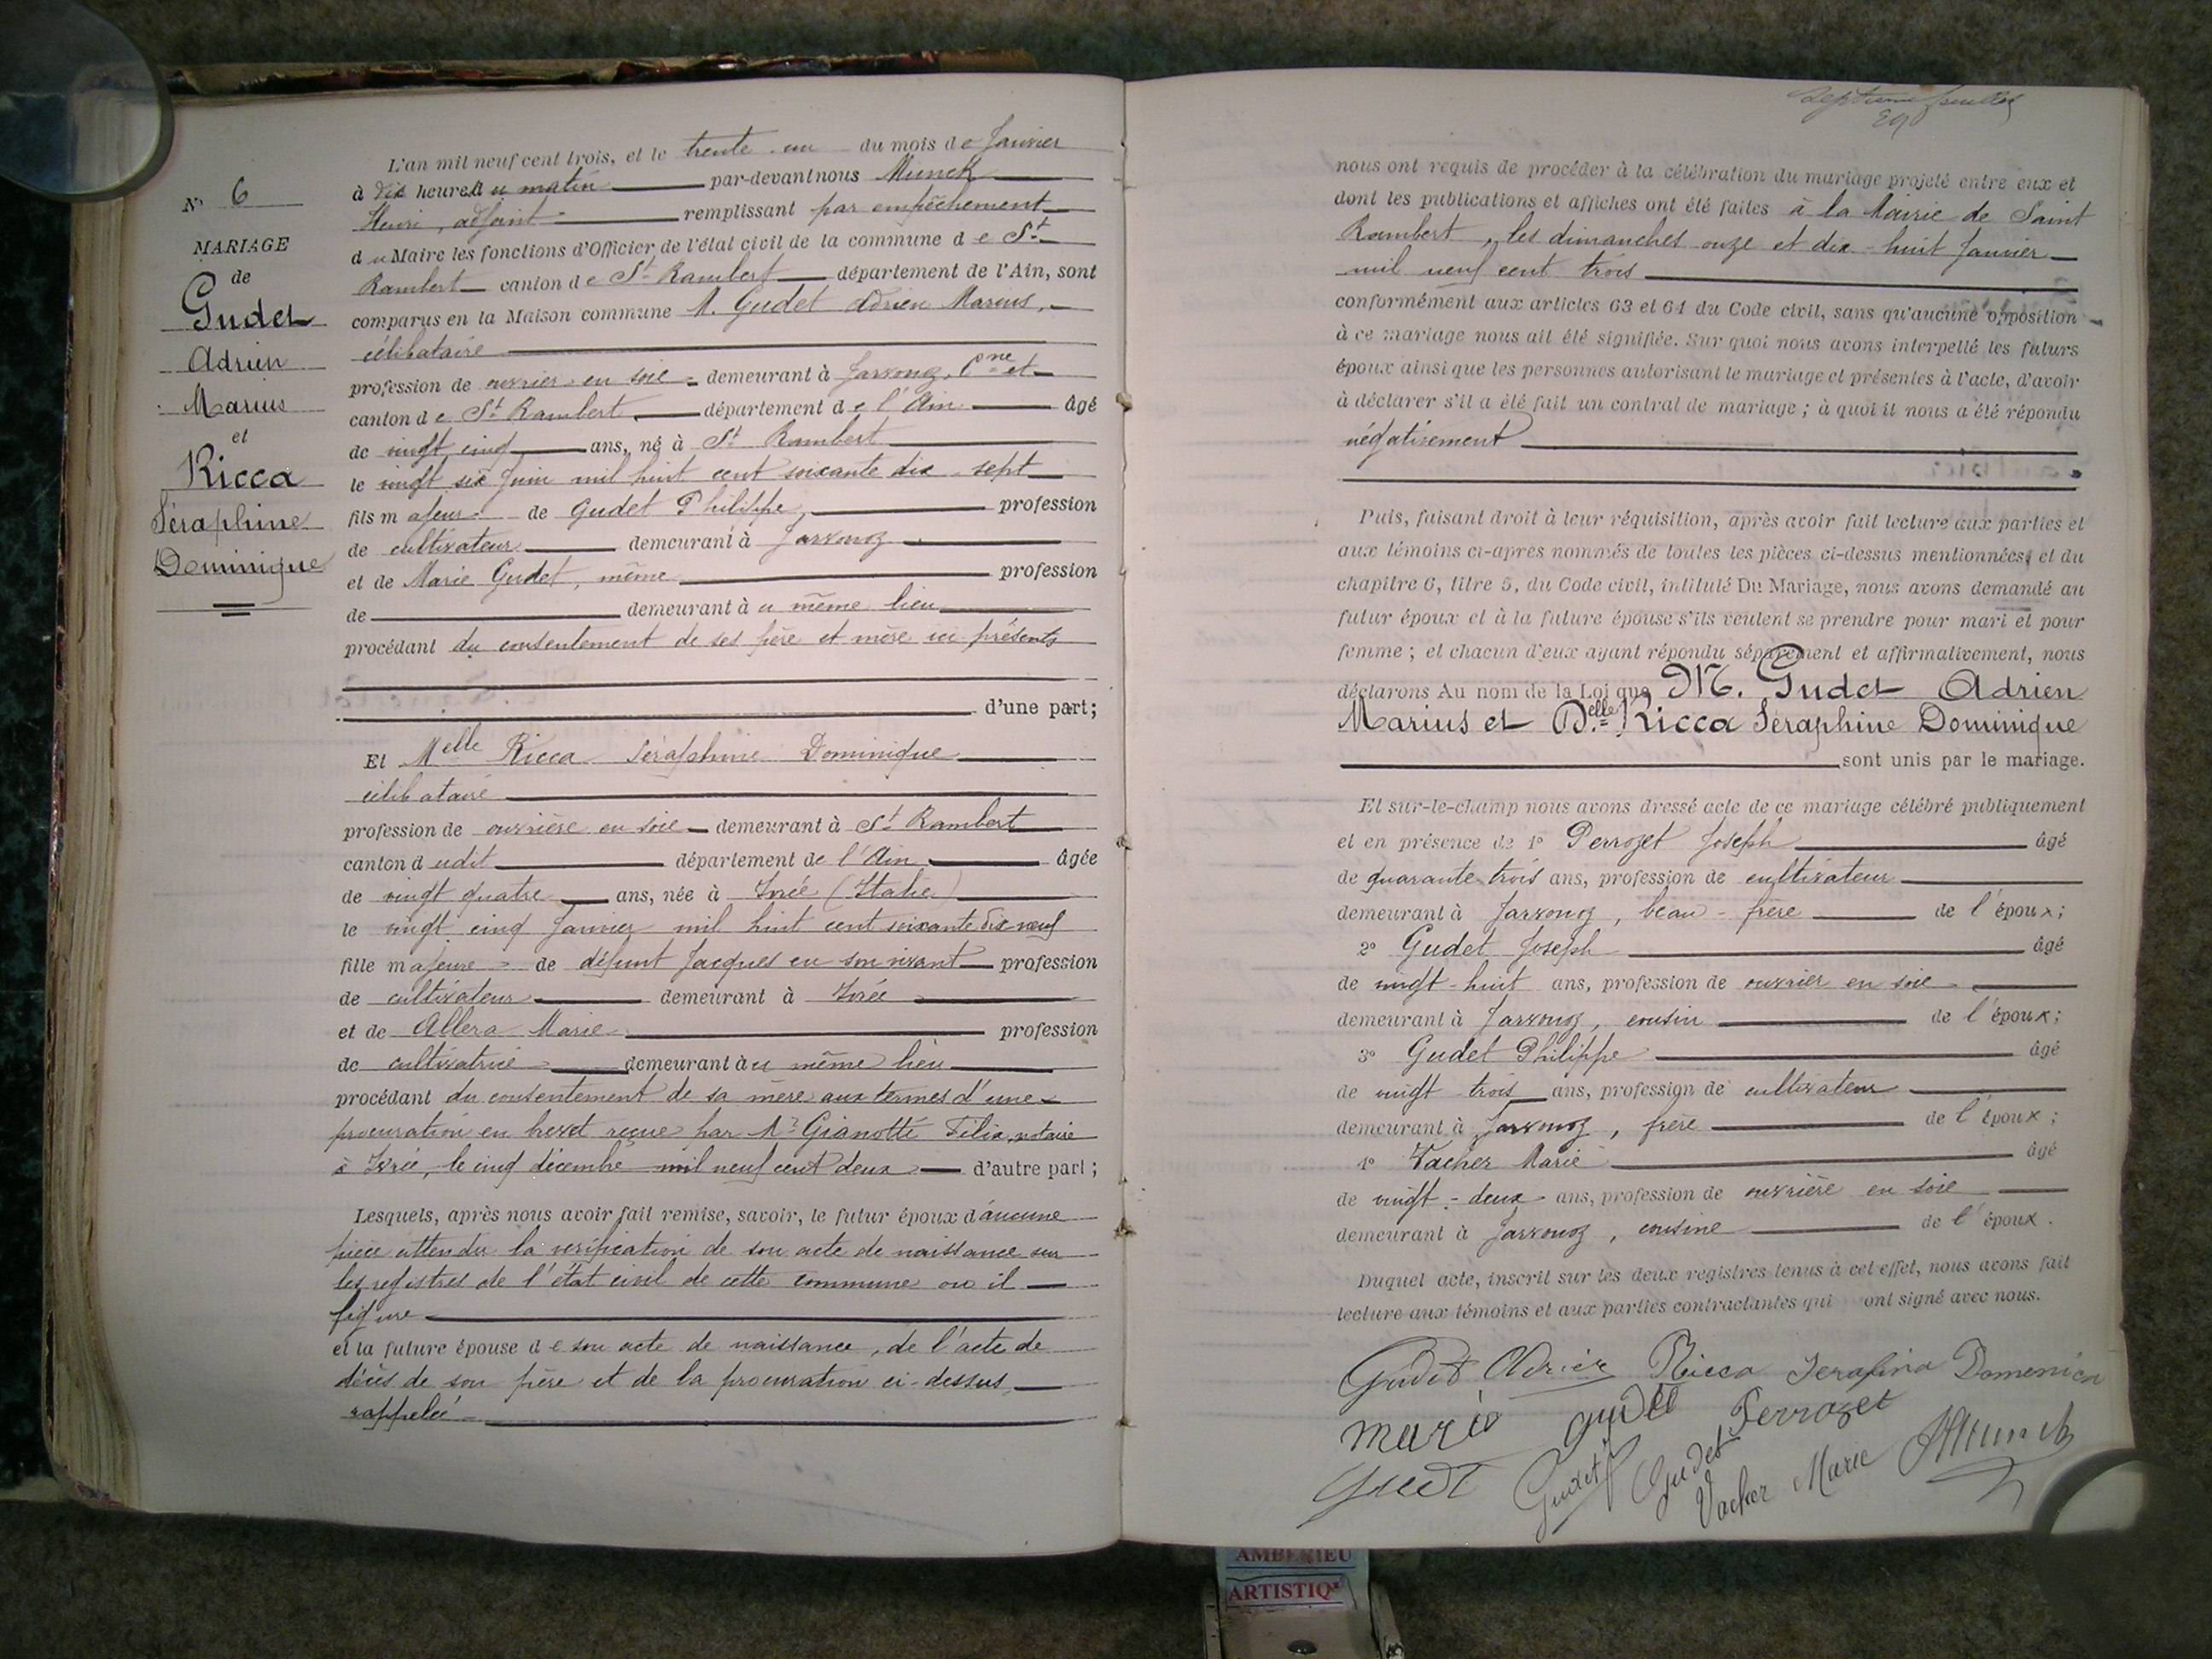 N° 6
MARIAGE
de
Gudet
Adrien
Marius
et
Ricca
Séraphine
Dominique
L'an mil neuf cent trois, et le trente-un du mois de Janvier
à dix heures du matin par-devant nous Munck
Henri, adjoint remplissant par empêchement
du Maire les fonctions d'Officier de l'état civil de la commune de St
Rambert canton de St Rambert département de l'Ain, sont
comparus en la Maison commune M. Gudet Adrien Marius,
célibataire
profession de ouvrier en soie demeurant à Javronoz, Cne et
canton de St Rambert département de l'Ain âgé
de vingt cinq ans, né à St Rambert
le vingt six Juin mil huit cent soixante dix-sept
fils majeur de Gudet Philippe, profession
de cultivateur demeurant à Javronoz
et de Marie Gudet, même profession
de demeurant au même lieu
procédant du consentement de ses père et mère ici présents
d'une part;
Et Melle Ricca Séraphine Dominique
célibataire
profession de ouvrière en soie demeurant à St Rambert
canton dudit département de l'Ain âgée
de vingt quatre ans, née à Ivrée (Italie)
le vingt cinq Janvier mil huit cent soixante dix neuf
fille majeure de défunt Jacques en son vivant profession
de cultivateur demeurant à Ivrée
et de Allera Marie profession
de cultivatrice demeurant au même lieu
procédant du consentement de sa mère aux termes d'une
procuration en brevet reçue par Me Gianotti Félix, notaire
à Ivrée, le cinq décembre mil neuf cent deux d'autre part;
Lesquels, après nous avoir fait remise, savoir, le futur époux d'aucune
pièce attendu la vérification de son acte de naissance sur
les registres de l'état civil de cette commune où il
figure
et la future épouse de son acte de naissance, de l'acte de
décès de son père et de la procuration ci-dessus
rappelée
Septième feuillet
nous ont requis de procéder à la célébration du mariage projeté entre eux et
dont les publications et affiches ont été faites à la Mairie de Saint
Rambert, les dimanches onze et dix-huit Janvier
mil neuf cent trois
conformément aux articles 63 et 64 du Code civil, sans qu'aucune opposition
à ce mariage nous ait été signifiée. Sur quoi nous avons interpellé les futurs
époux ainsi que les personnes autorisant le mariage et présentes à l'acte, d'avoir
à déclarer s'il a été fait un contrat de mariage; à quoi il nous a été répondu
négativement
Puis, faisant droit à leur réquisition, après avoir fait lecture aux parties et
aux témoins ci-après nommés de toutes les pièces ci-dessus mentionnées, et du
chapitre 6, titre 5, du Code civil, intitulé Du Mariage, nous avons demandé au
futur époux et à la future épouse s'ils veulent se prendre pour mari et pour
femme; et chacun d'eux ayant répondu séparément et affirmativement, nous
déclarons Au nom de la Loi que M. Gudet Adrien
Marius et Delle Ricca Séraphine Dominique
sont unis par le mariage.
Et sur-le-champ nous avons dressé acte de ce mariage célébré publiquement
et en présence de 1° Perrozet Joseph âgé
de quarante-trois ans, profession de cultivateur
demeurant à Javronoz, beau-frère de l'époux;
2° Gudet Joseph âgé
de vingt-huit ans, profession de ouvrier en soie
demeurant à Javronoz, cousin de l'époux;
3° Gudet Philippe âgé
de vingt trois ans, profession de cultivateur
demeurant à Javronoz, frère de l'époux;
4° Vacher Marie âgé
de vingt-deux ans, profession de ouvrière en soie
demeurant à Javronoz, cousine de l'époux.
Duquel acte, inscrit sur les deux registres tenus à cet effet, nous avons fait
lecture aux témoins et aux parties contractantes qui ont signé avec nous.
Gudet Adrien Ricca Serafina Domenica
marie gudet Perrozet
Gudet Gudet
Vacher Marie Munck
AMBERIEU
ARTISTIQ